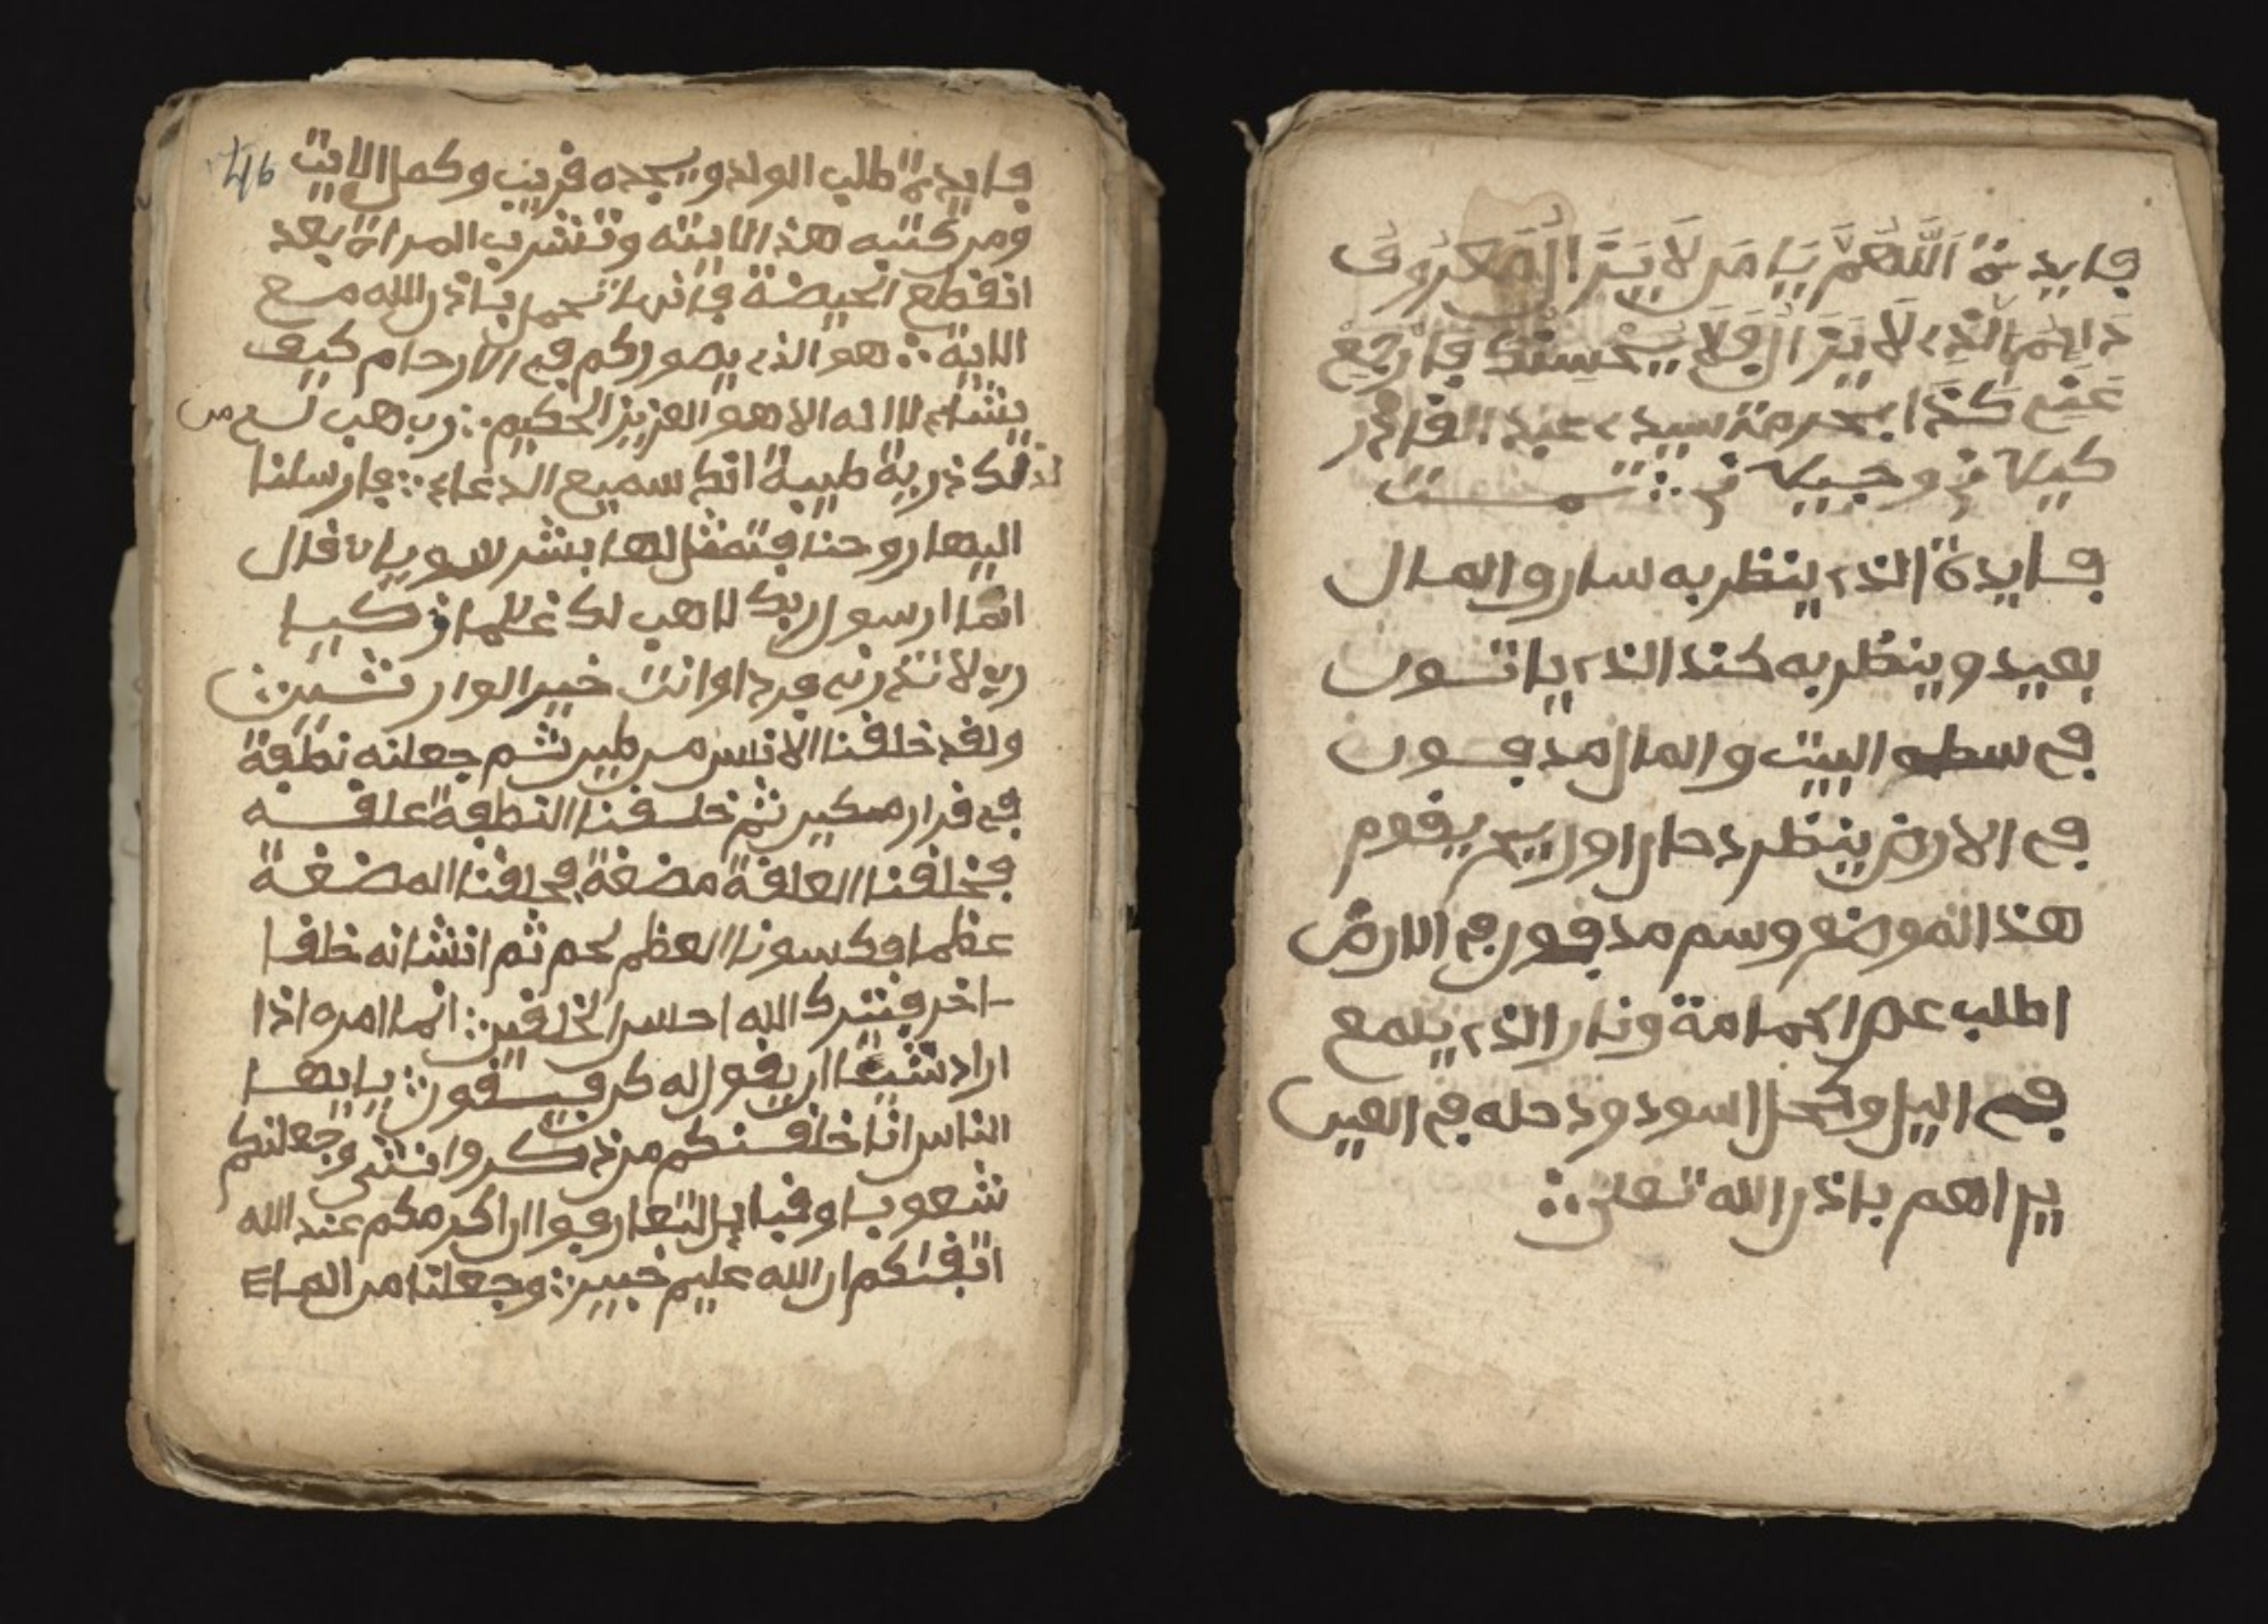 فايدة اللهم يا من لا يزال معروف
دايم الذي لا يزال فلا يحسنك فارجع
عني كذا بحرمة سيدي عبد القادر
كيلاني وجيلاني تمت
فايدة الذي ينظر به ساروا المال
بعيد وينظر به كند الذي ياتون
في سطو البيت والمال مدفون
في الارض ينظر دحان اوريح يقوم
هذ الموضع وسم مدفون في الارض
اطلب عضم احمامة ونار الذي يلمع
في اليل وكحل اسود ودحله في العين
يراهم باذن الله تعلى
46
فايدة طلب الولد ويجده قريب وكمل الايت
ومن كتبه هذ الايته وتشرب المراة بعد
انقطع الحيضة فانها تحمل باذن الله مع
الاية هو الذي يصوركم في الارحام كيف
يشاء لا اله الا هو العزيز الحكيم رب هب لي من
لدنك ذرية طيبة انك سميع الدعاء فارسلنا
اليها روحنا فتمثل لها بشر سويا قال
انما رسول ربك لاهب لك غلما زكيا
رب لا تذرني فردا وانت خير الوارثين
ولقد خلقنا الانس من طين ثم جعلنه نطفة
في قرار مكين ثم خلقنا النطفة علقه
فخلقنا العلقة مضغة فخلقنا المضغة
عظما فكسونا العظم لحم ثم انشانه خلقا
اخر فتبرك الله احسن الخلقين انما امره اذا
اراد شيئا ان يقول له كن فيسقون يايها
الناس انا خلقنكم من ذكر وانثى وجعلنكم
شعوبا وقبايل لتعارفوا ان اكرمكم عند الله
اتقىكم ان الله عليم خبير وجعلنا من الماء